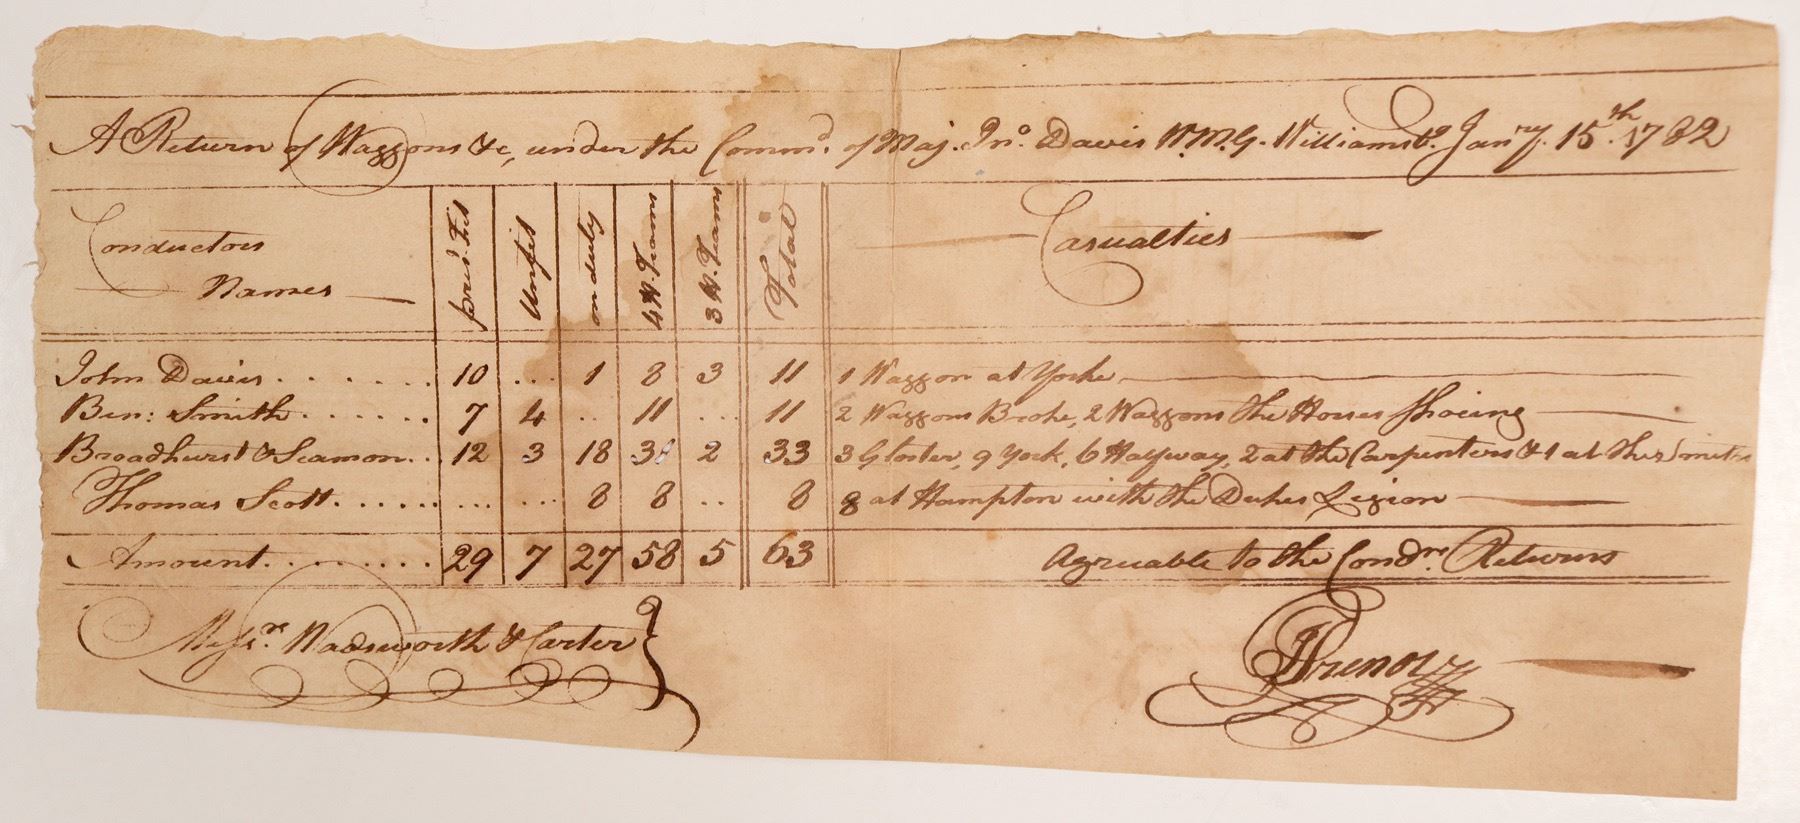 A Return of Waggons &c, under the Comm.d of Maj. Jn.o Davis W.M.G. Williamsb.g Jan.ry 15.th 1782
Conductors Names | pres.t Fit | Unfit | on duty | 4 H. Teams | 3 H. Teams | Total | Casualties
John Davis . . . . . . . 10 ... 1 8 3 11 1 Waggon at Yorke
Ben: Smith . . . . . . . 7 4 .. 11 ... 11 2 Waggons Broke, 2 Waggons the Horses Shoeing
Broadhurst & Seamon . . 12 3 18 31 2 33 3 Gloster, 9 York, 6 Halfway, 2 at the Carpenters & 1 at the Smiths
Thomas Scott . . . . . . ... ... 8 8 .. 8 8 at Hampton with the Dukes Legion
Amount . . . . . . . . . 29 7 27 58 5 63 Agreeable to the Cond.rs Returns
Mess.rs Wadsworth & Carter }